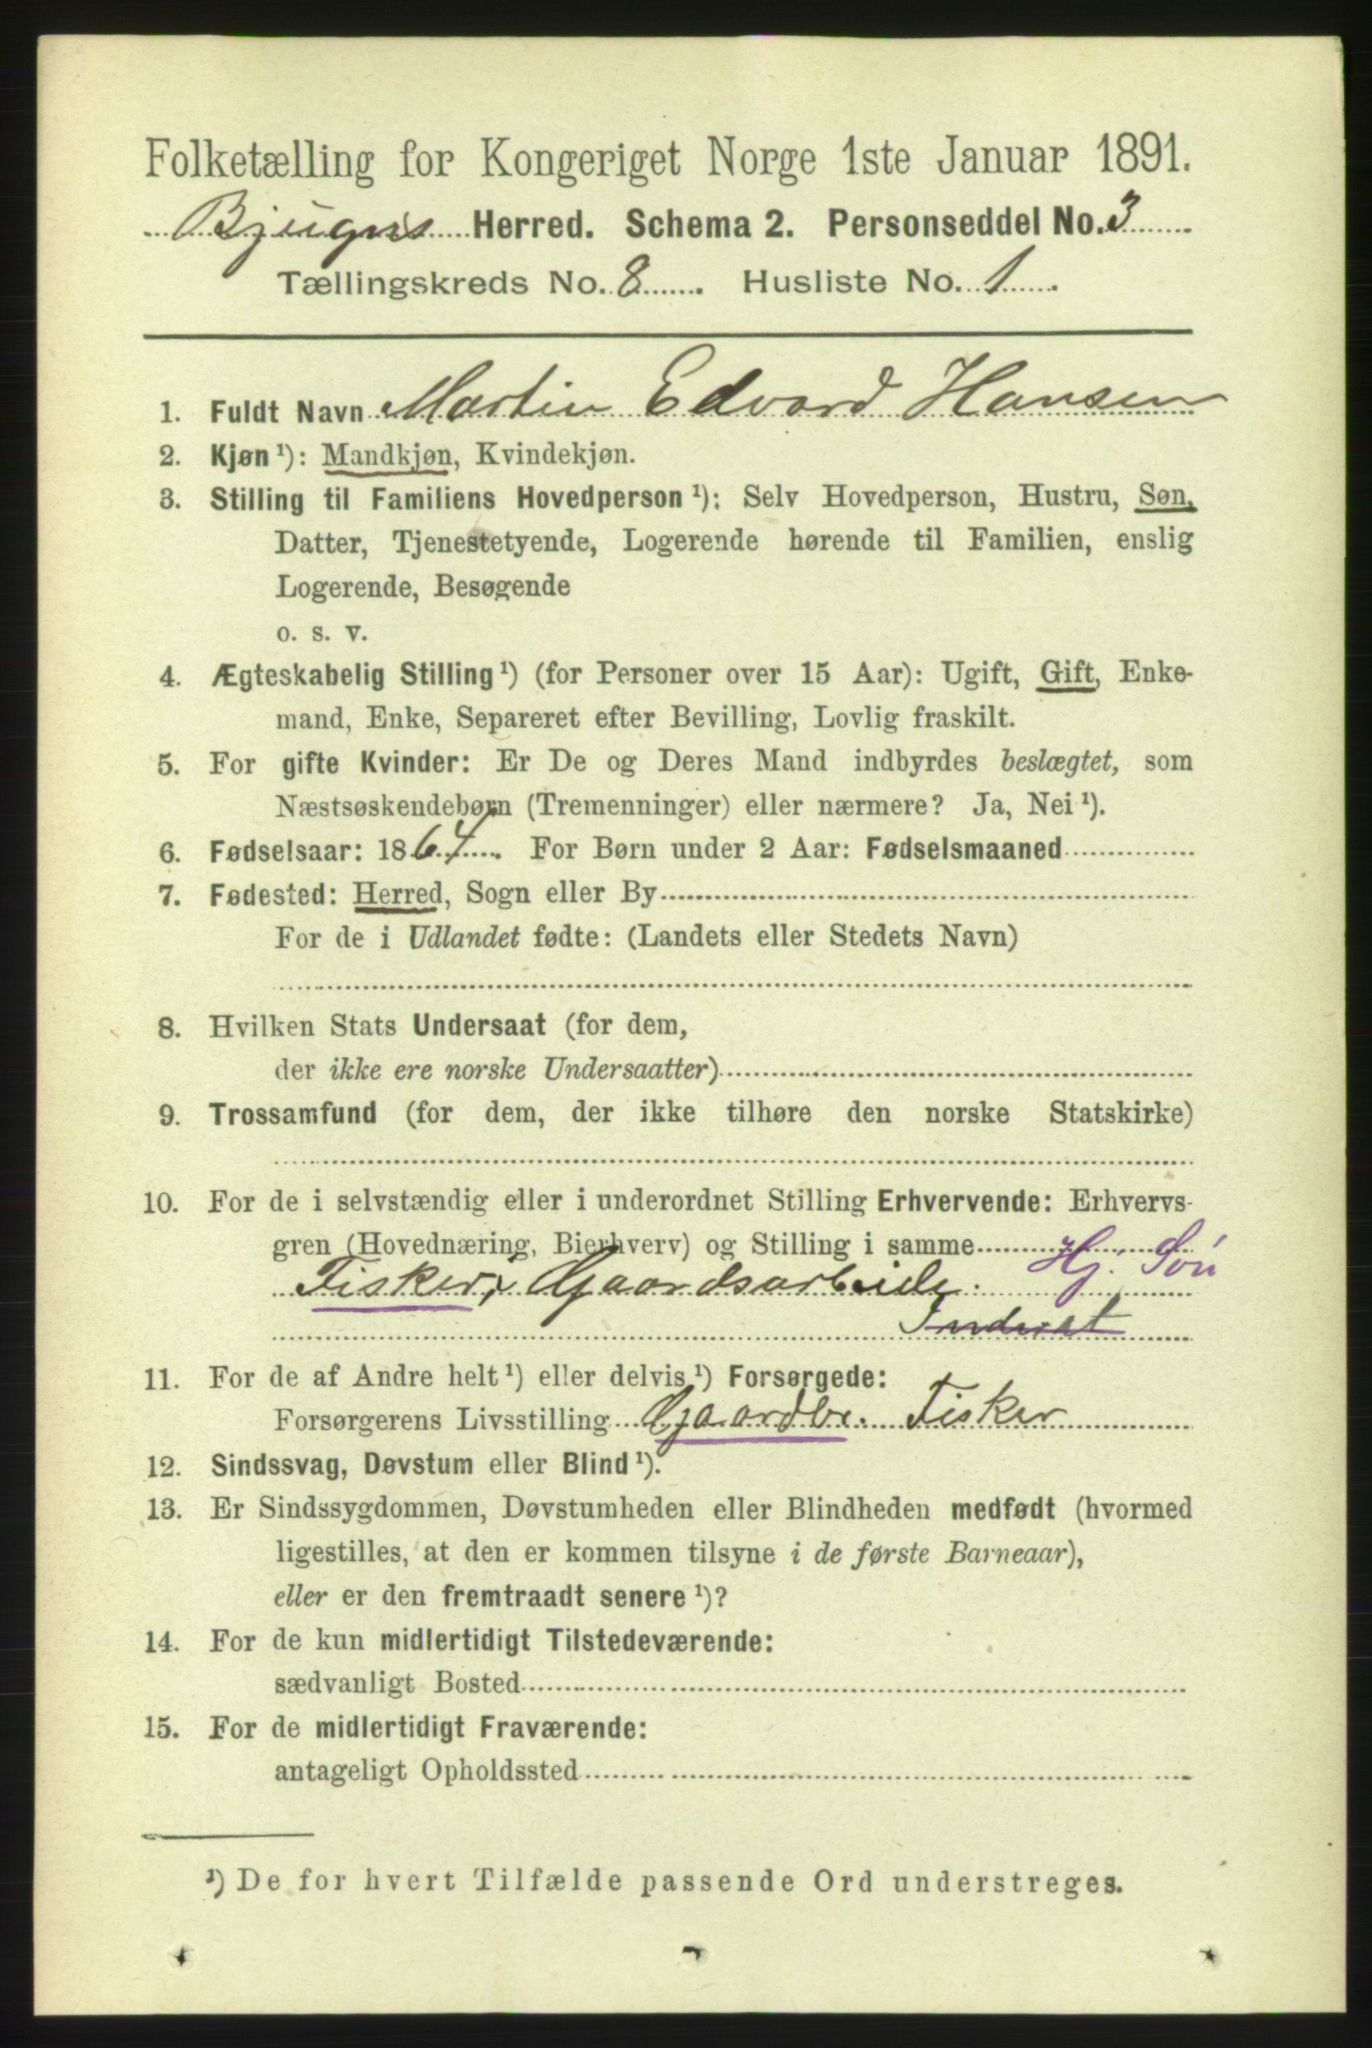 Folketælling for Kongeriget Norge 1ste Januar 1891.
Bjugns Herred. Schema 2. Personseddel No. 3
Tællingskreds No. 8. Husliste No. 1.
1. Fuldt Navn Martin Edvard Hansen
2. Kjøn ¹): Mandkjøn, Kvindekjøn.
3. Stilling til Familiens Hovedperson ¹): Selv Hovedperson, Hustru, Søn,
Datter, Tjenestetyende, Logerende hørende til Familien, enslig
Logerende, Besøgende
o. s. v.
4. Ægteskabelig Stilling ¹) (for Personer over 15 Aar): Ugift, Gift, Enke-
mand, Enke, Separeret efter Bevilling, Lovlig fraskilt.
5. For gifte Kvinder: Er De og Deres Mand indbyrdes beslægtet, som
Næstsøskendebørn (Tremenninger) eller nærmere? Ja, Nei ¹).
6. Fødselsaar: 1864. For Børn under 2 Aar: Fødselsmaaned
7. Fødested: Herred, Sogn eller By
For de i Udlandet fødte: (Landets eller Stedets Navn)
8. Hvilken Stats Undersaat (for dem,
der ikke ere norske Undersaatter)
9. Trossamfund (for dem, der ikke tilhøre den norske Statskirke)
10. For de i selvstændig eller i underordnet Stilling Erhvervende: Erhvervs-
gren (Hovednæring, Bierhverv) og Stilling i samme Hj. Søn
Fisker, Gaardsarbeide.
Inderst
11. For de af Andre helt ¹) eller delvis ¹) Forsørgede:
Forsørgerens Livsstilling Gaardbr. Fisker
12. Sindssvag, Døvstum eller Blind ¹).
13. Er Sindssygdommen, Døvstumheden eller Blindheden medfødt (hvormed
ligestilles, at den er kommen tilsyne i de første Barneaar),
eller er den fremtraadt senere ¹)?
14. For de kun midlertidigt Tilstedeværende:
sædvanligt Bosted
15. For de midlertidigt Fraværende:
antageligt Opholdssted
¹) De for hvert Tilfælde passende Ord understreges.